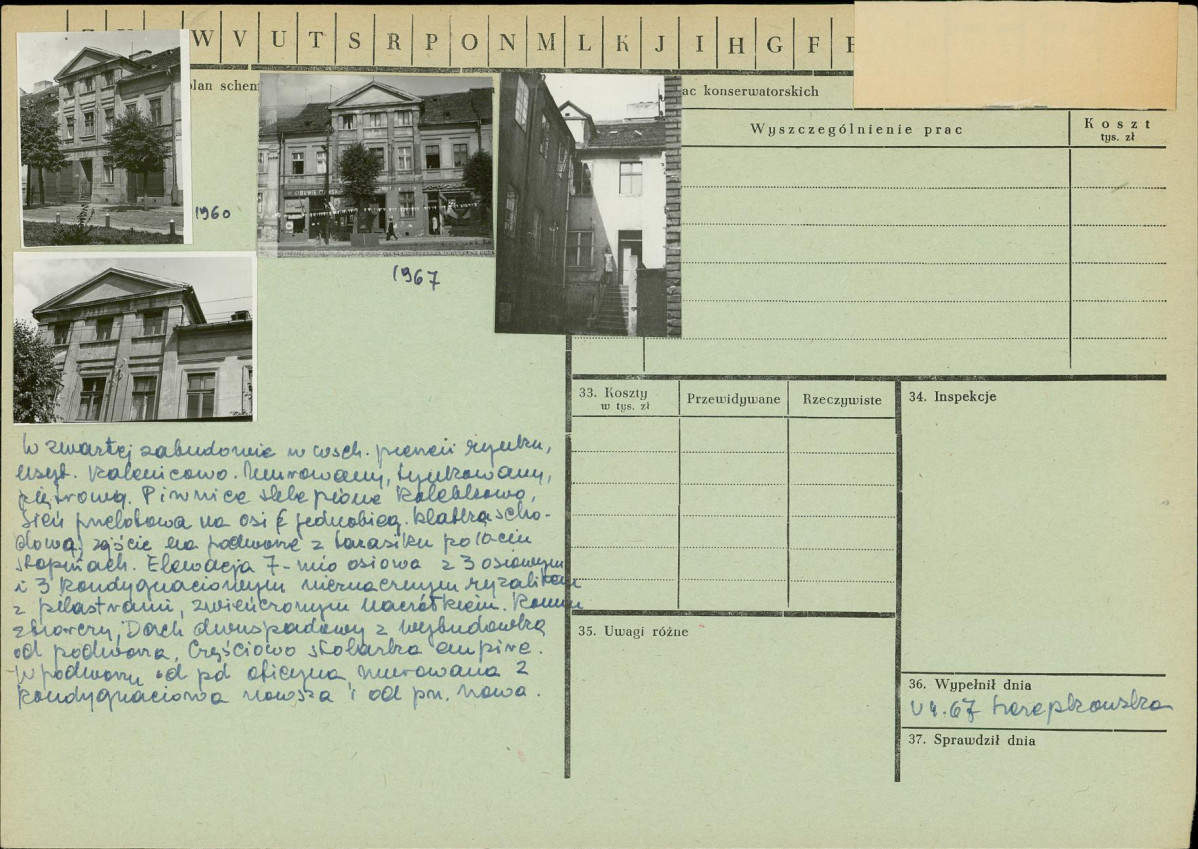 W V U T S R P O N M L K J I H G F
plan schem
ac konserwatorskich
Wyszczególnienie prac
Koszt
tys. zł
1960
1967
33. Koszty
w tys. zł
Przewidywane
Rzeczywiste
34. Inspekcje
W zwartej zabudowie w wsch. pierzei rynku,
usyt. kalenicowo. Murowany, tynkowany,
piętrowy. Piwnice sklepione kolebkowo,
Sień przelotowa na osi z jednobieg. klatką scho-
dową, zejście na podwórze z tarasiku po
stopniach. Elewacja 7-mio osiowa z 3 osiowym
i 3 kondygnacjowym nieznacznym ryzalitem
z pilastrami, zwieńczonym naczółkiem.
zbiorczy, Dach dwuspadowy z wybudówką
od podwórza, Częściowo stolarka empire.
W podwórzu od pd oficyna murowana 2
kondygnaciowa nowsza i od pn. nowa.
35. Uwagi różne
36. Wypełnił dnia
67
37. Sprawdził dnia